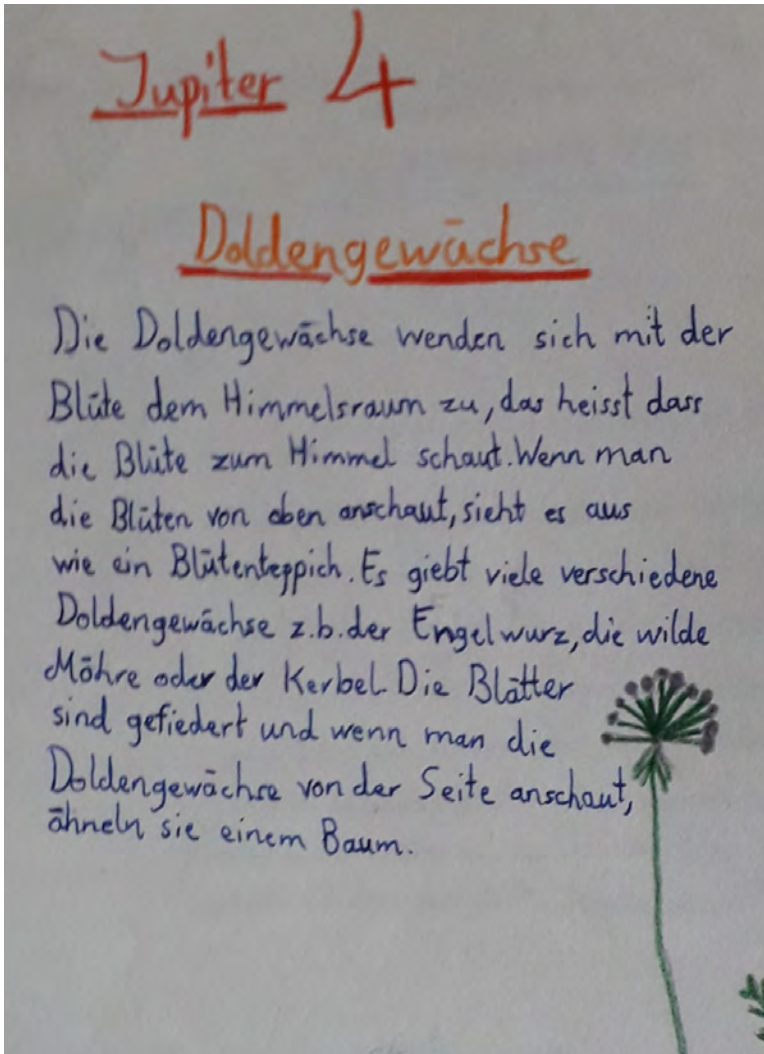 Jupiter 4
Doldengewächse
Die Doldengewächse wenden sich mit der
Blüte dem Himmelsraum zu, das heisst dass
die Blüte zum Himmel schaut. Wenn man
die Blüten von oben anschaut, sieht es aus
wie ein Blütenteppich. Es giebt viele verschiedene
Doldengewächse z.b. der Engelwurz, die wilde
Möhre oder der Kerbel. Die Blätter
sind gefiedert und wenn man die
Doldengewächse von der Seite anschaut,
ähneln sie einem Baum.